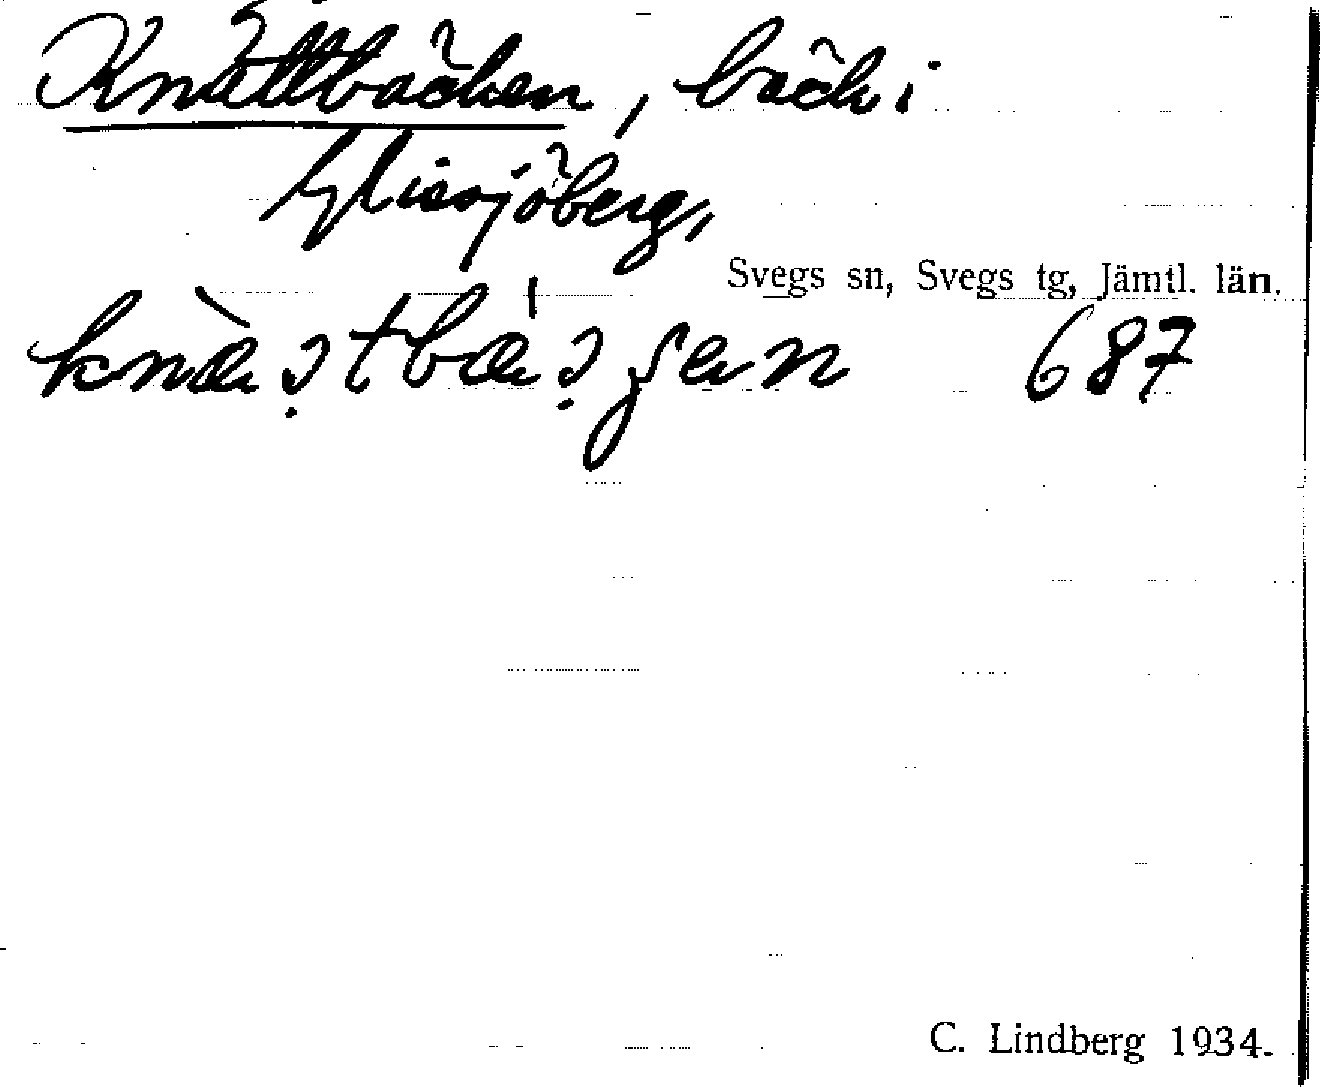 Knättbäcken, bäck i
Glissjöberg,
Svegs sn, Svegs tg, Jämtl. län.
687
C. Lindberg 1934.